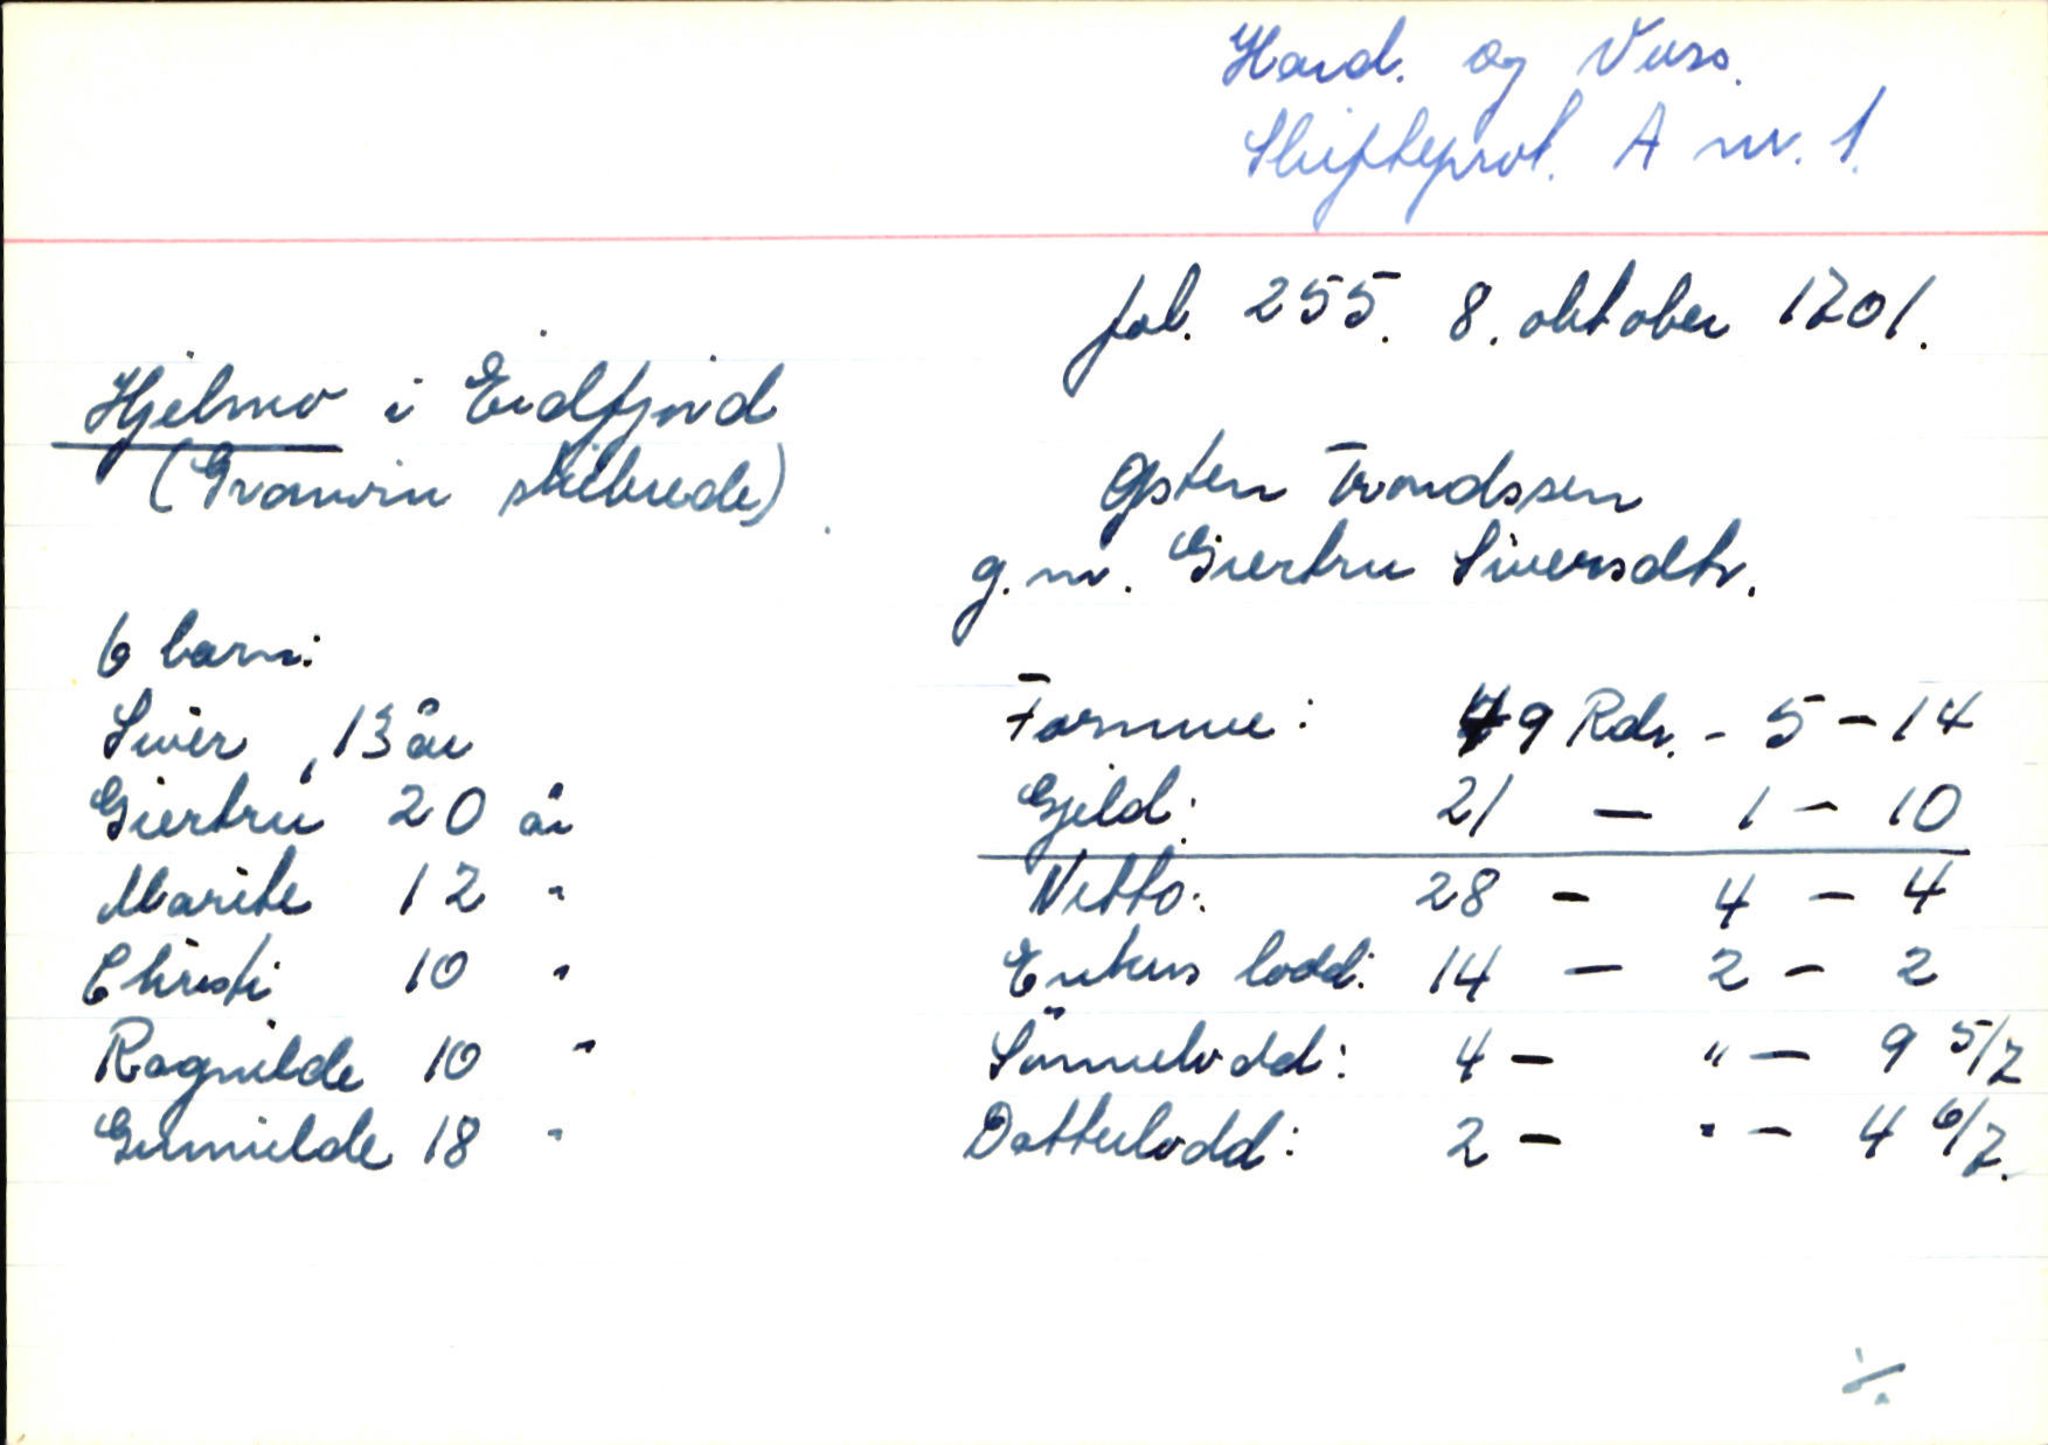 Hard. og Voss.
Skifteprot. A nr. 1.
fol. 255. 8. oktober 1701.
Hjelmo i Eidfjord
(Granvin skibrede).
Østen Trondssen
g. m. Giertru Siversdtr.
6 barn:
Siver, 13 år
Giertru 20 år
Marite 12 "
Christi 10 "
Ragnilde 10 "
Gunnilde 18 "
Formue: 49 Rdr. - 5 - 14
Gjeld: 21 - 1 - 10
Netto: 28 - 4 - 4
Enkens lodd: 14 - 2 - 2
Sønnelodd: 4 - " - 9 5/7
Datterlodd: 2 - " - 4 6/7.